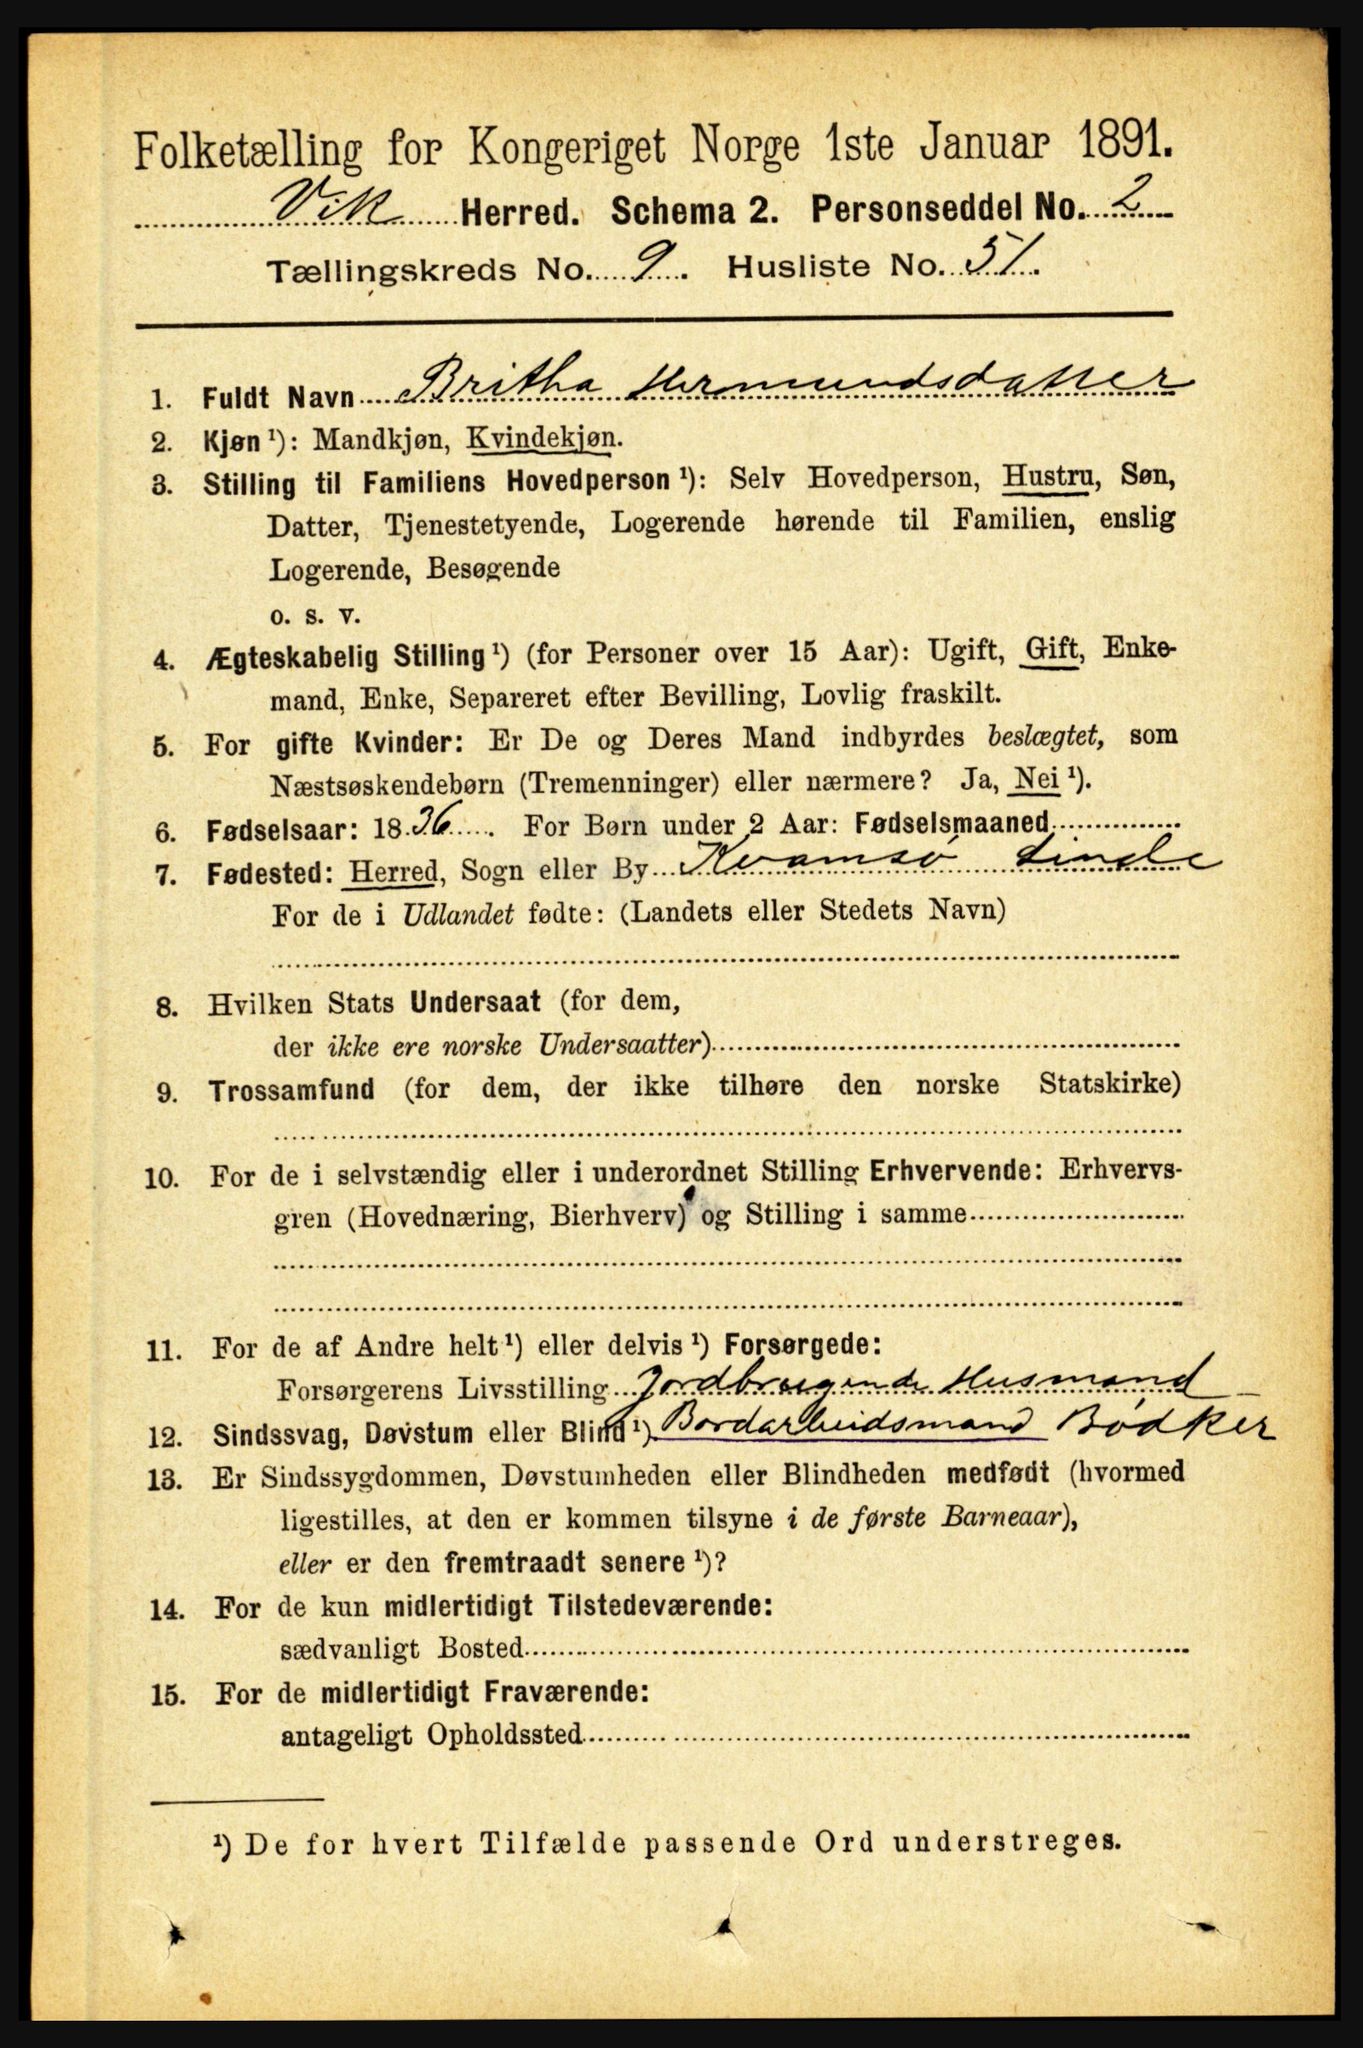 Folketælling for Kongeriget Norge 1ste Januar 1891.
Vik Herred. Schema 2. Personseddel No. 2
Tællingskreds No. 9. Husliste No. 51.
1. Fuldt Navn Britha Hermundsdatter
2. Kjøn ¹): Mandkjøn, Kvindekjøn.
3. Stilling til Familiens Hovedperson ¹): Selv Hovedperson, Hustru, Søn,
Datter, Tjenestetyende, Logerende hørende til Familien, enslig
Logerende, Besøgende
o. s. v.
4. Ægteskabelig Stilling ¹) (for Personer over 15 Aar): Ugift, Gift, Enke-
mand, Enke, Separeret efter Bevilling, Lovlig fraskilt.
5. For gifte Kvinder: Er De og Deres Mand indbyrdes beslægtet, som
Næstsøskendebørn (Tremenninger) eller nærmere? Ja, Nei ¹).
6. Fødselsaar: 1836. For Børn under 2 Aar: Fødselsmaaned
7. Fødested: Herred, Sogn eller By Kvamsö
For de i Udlandet fødte: (Landets eller Stedets Navn)
8. Hvilken Stats Undersaat (for dem,
der ikke ere norske Undersaatter)
9. Trossamfund (for dem, der ikke tilhøre den norske Statskirke)
10. For de i selvstændig eller i underordnet Stilling Erhvervende: Erhvervs-
gren (Hovednæring, Bierhverv) og Stilling i samme
11. For de af Andre helt ¹) eller delvis ¹) Forsørgede:
Forsørgerens Livsstilling Jordbrugende Husmand
12. Sindssvag, Døvstum eller Blind ¹) Bordarbeidsmand Bödker
13. Er Sindssygdommen, Døvstumheden eller Blindheden medfødt (hvormed
ligestilles, at den er kommen tilsyne i de første Barneaar),
eller er den fremtraadt senere ¹)?
14. For de kun midlertidigt Tilstedeværende:
sædvanligt Bosted
15. For de midlertidigt Fraværende:
antageligt Opholdssted
¹) De for hvert Tilfælde passende Ord understreges.